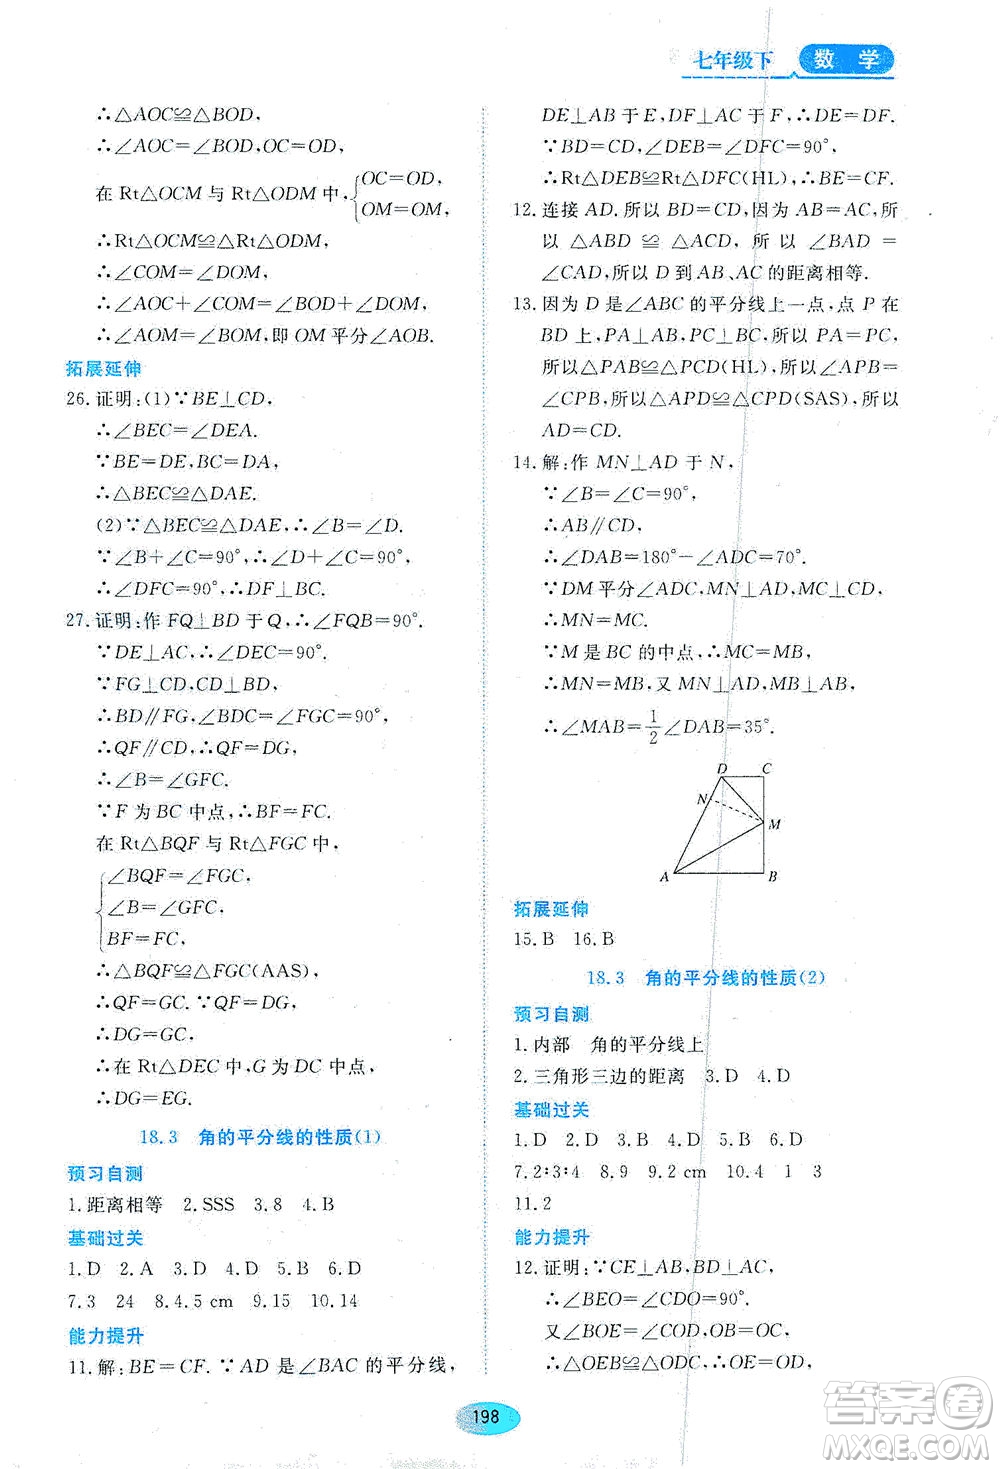 七年级下 数 学
∴△AOC≌△BOD,
∴∠AOC=∠BOD,OC=OD,
在 Rt△OCM 与 Rt△ODM 中,{OC=OD,
OM=OM,
∴Rt△OCM≌△ODM,
∴∠COM=∠DOM,
∴∠AOC+∠COM=∠BOD+∠DOM,
∴∠AOM=∠BOM,即 OM 平分∠AOB.
拓展延伸
26.证明:(1)∵BE⊥CD,
∴∠BEC=∠DEA.
∵BE=DE,BC=DA,
∴△BEC≌△DAE.
(2)∵△BEC≌△DAE,∴∠B=∠D.
∵∠B+∠C=90°,∴∠D+∠C=90°.
∴∠DFC=90°,∴DF⊥BC.
27.证明:作 FQ⊥BD 于 Q,∴∠FQB=90°.
∵DE⊥AC,∴∠DEC=90°.
∵FG⊥CD,CD⊥BD,
∴BD∥FG,∠BDC=∠FGC=90°.
∴QF∥CD,∴QF=DG.
∴∠B=∠GFC.
∵F 为 BC 中点,∴BF=FC.
在 Rt△BQF 与 Rt△FGC 中,
{∠BQF=∠FGC,
∠B=∠GFC,
BF=FC,
∴△BQF≌△FGC(AAS).
∴QF=GC. ∵QF=DG,
∴DG=GC.
∴在 Rt△DEC 中,G 为 DC 中点,
∴DG=EG.
18.3 角的平分线的性质(1)
预习自测
1.距离相等 2.SSS 3.8 4.B
基础过关
1.D 2.A 3.D 4.D 5.D 6.D
7.3 24 8.4.5 cm 9.15 10.14
能力提升
11.解:BE=CF. ∵AD 是∠BAC 的平分线,
DE⊥AB 于 E,DF⊥AC 于 F,∴DE=DF.
∵BD=CD,∠DEB=∠DFC=90°,
∴Rt△DEB≌Rt△DFC(HL),∴BE=CF.
12.连接 AD. 所以 BD=CD,因为 AB=AC,所
以 △ABD ≌ △ACD, 所 以 ∠BAD =
∠CAD,所以 D 到 AB、AC 的距离相等.
13.因为 D 是∠ABC 的平分线上一点,点 P 在
BD 上,PA⊥AB,PC⊥BC,所以 PA=PC,
所以△PAB≌△PCD(HL),所以∠APB=
∠CPB,所以△APD≌△CPD(SAS),所以
AD=CD.
14.解:作 MN⊥AD 于 N,
∵∠B=∠C=90°,
∴AB∥CD,
∴∠DAB=180°-∠ADC=70°.
∵DM 平分∠ADC,MN⊥AD,MC⊥CD,
∴MN=MC.
∵M 是 BC 的中点,∴MC=MB,
∴MN=MB,又 MN⊥AD,MB⊥AB,
∴∠MAB=1/2∠DAB=35°.
D C
N
M
A B
拓展延伸
15.B 16.B
18.3 角的平分线的性质(2)
预习自测
1.内部 角的平分线上
2.三角形三边的距离 3.D 4.D
基础过关
1.D 2.D 3.D 4.B 5.D 6.D
7.2∶3∶4 8.9 9.2 cm 10.4 1 3
11.2
能力提升
12.证明:∵CE⊥AB,BD⊥AC,
∴∠BEO=∠CDO=90°.
又∠BOE=∠COD,OB=OC,
∴△OEB≌△ODC,∴OE=OD.
198
答案圈
MXQE.COM